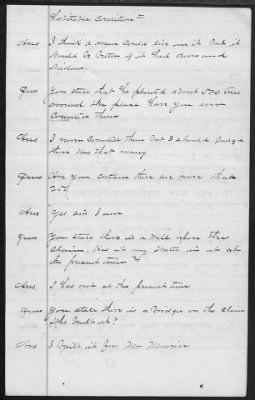 habitable condition
Ans I think a man could live in it but it
would be better if it had doors and
windows.
Ques You state that he planted about 500 trees
around the place have you ever
counted them
Ans I never counted them but I should judge
there was that many
Ques Are you certain there are more than
250.
Ans Yes sir I am
Ques You state there is a well upon this
claim. Has it any water in it at
the present time
Ans It has not at the present time
Ques You state there is a bridge on the claim
Who built it?
Ans I built it for Mr